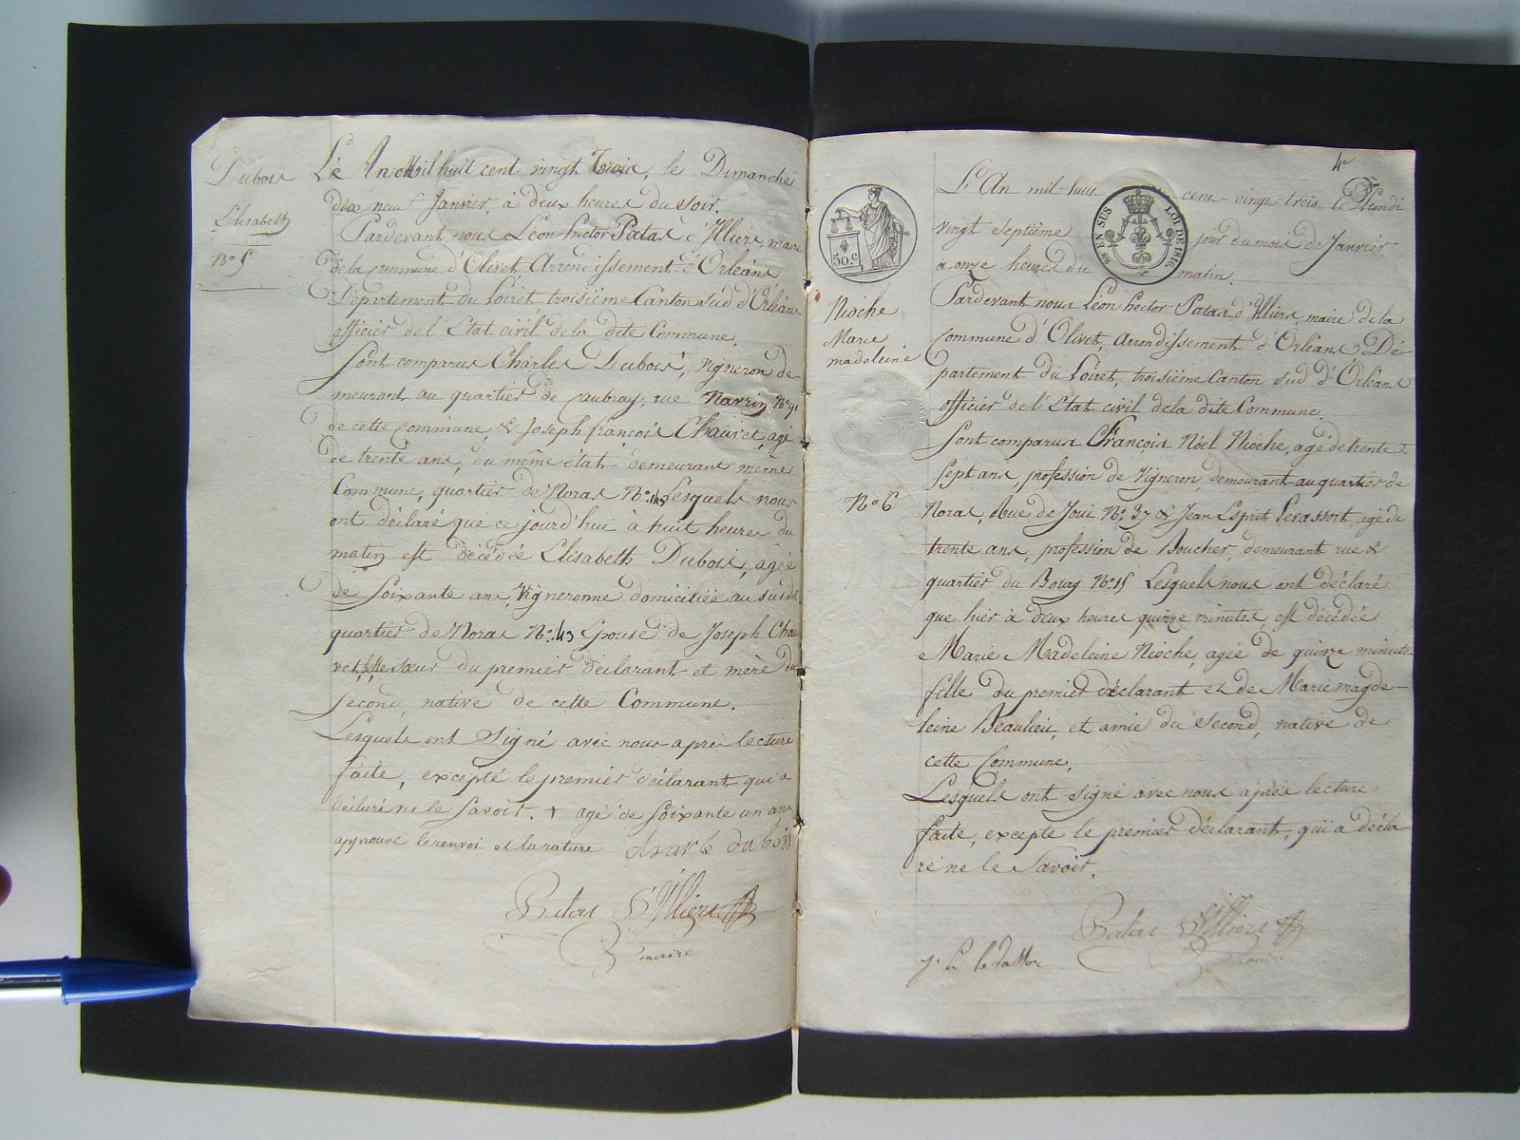 Dubois
Elisabeth
N° 5
Lé An Mil huit cent vingt Trois, le Dimanche
dix neuf Janvier, à deux heures du soir.
Pardevant nous Léon hector Patas d'Illiers, maire
de la commune d'Olivet, Arrondissement d'Orléans
Département du Loiret, troisième Canton sud d'Orléans
officier de l'Etat civil de la dite Commune.
Sont comparus Charles Dubois, Vigneron de-
meurant au quartier de caubray, rue
de cette commune, & Joseph françois Chauvet, agé
de trente ans, du même état demeurant même
Commune, quartier de Noras N° 43 Lesquels nous
ont déclaré que ce jourd'hui à huit heures du
matin est décédée Elisabeth Dubois, agée
de Soixante ans, Vigneronne domiciliée au susdit
quartier de Noras N° 43 Epouse de Joseph Chau
vet, sœur du premier déclarant et mère du
second, native de cette Commune.
Lesquels ont Signé avec nous après lecture
faite, excepté le premier déclarant qui a
déclaré ne le Savoir. + agé de Soixante un ans
approuvé le renvoi et la rature charle dubois
Patas D'Illiers
maire
4
50 c
EN SUS
LOI DE 1816
L'An mil-huit cent vingt trois le Lundi
vingt septième jour du mois de Janvier
a onze heures du matin.
Nioche
Marie
madeleine
N° 6
Pardevant nous Léon hector Patas d'Illiers, maire de la
Commune d'Olivet, Arrondissement d'Orléans Dé-
partement du Loiret, troisième Canton sud d'Orléans
officier de l'Etat civil de la dite Commune.
Sont comparus François Noël Nioche, agé de trente-
sept ans, profession de Vigneron, demeurant au quartier de
Noras, Rue de Joui N° 37 & Jean Esprit agé de
trente ans, profession de Boucher, demeurant rue &
quartier du Bourg N° 15 Lesquels nous ont déclaré
que hier à deux heures quinze minutes est décédée
Marie Madeleine Nioche, agée de quinze minutes
fille du premier déclarant et de Marie magde-
leine Beaulieu, et amie du Second, native de
cette Commune.
Lesquels ont signé avec nous après lecture
faite, excepté le premier déclarant, qui a décla
ré ne le Savoir.
Patas D'Illiers
maire